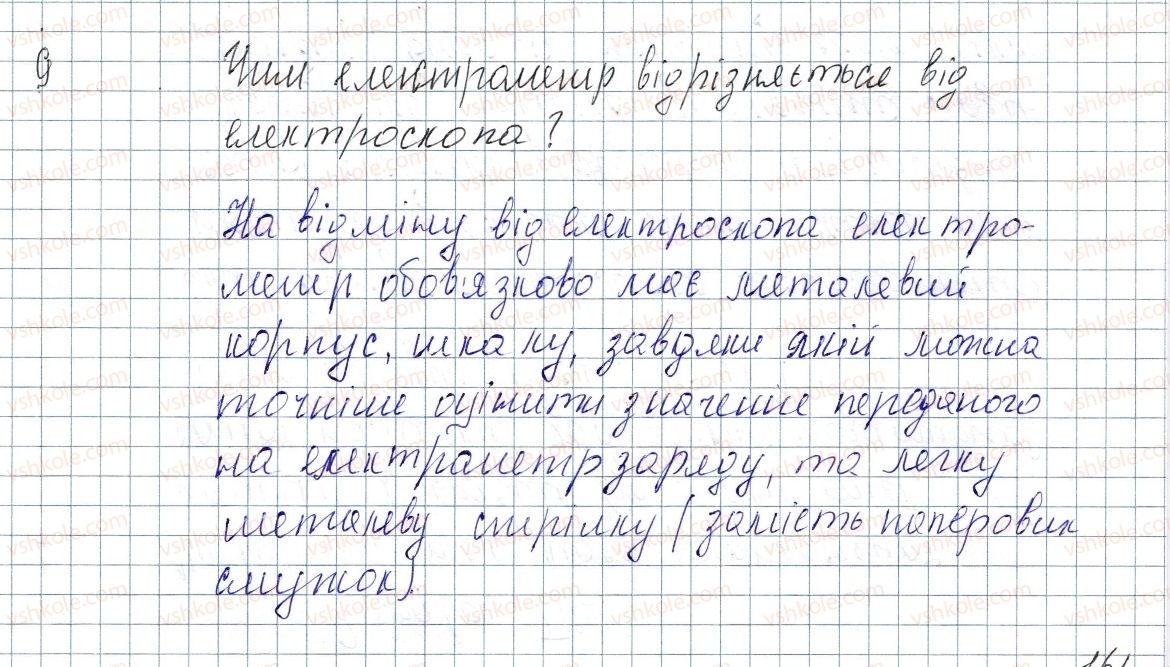 9 Чим електрометр відрізняється від
електроскопа?
На відміну від електроскопа електро-
метр обов'язково має металевий
корпус, шкалу, завдяки якій можна
точніше оцінити значення переданого
на електрометр заряду, та легку
металеву стрілку (замість паперових
смужок).
161